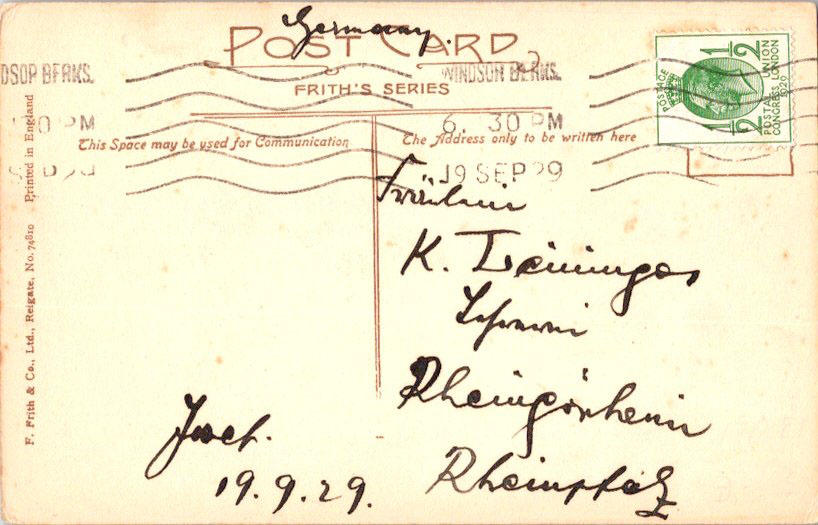 Germany.
POST CARD
WINDSOR BERKS.
DSOR BERKS.
FRITH'S SERIES
6. 30 PM
30 PM
19 SEP 29
This Space may be used for Communication
The Address only to be written here
POSTAGE
1/2 1/2
POSTAL UNION
CONGRESS LONDON
1929
Printed in England
F. Frith & Co., Ltd., Reigate, No. 74810
Fräulein
K.
Rheingönheim
Rheinpfalz
Josef.
19.9.29.